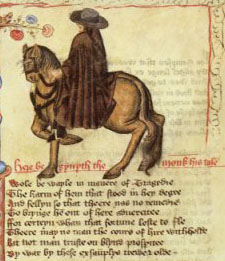 here begynyth the monk his tale
Wole be wayle in manere of Tragedie
The harm of hem that stood in heer degre
And fellyn so that there nas no remedie
To brynge hem out of here aduersitee
For certeyn whan that fortune leste to fle
There may no man the cours of hire withholde
Lat not man truste on blynd prosperite
By war by these exsaumples trewe & olde